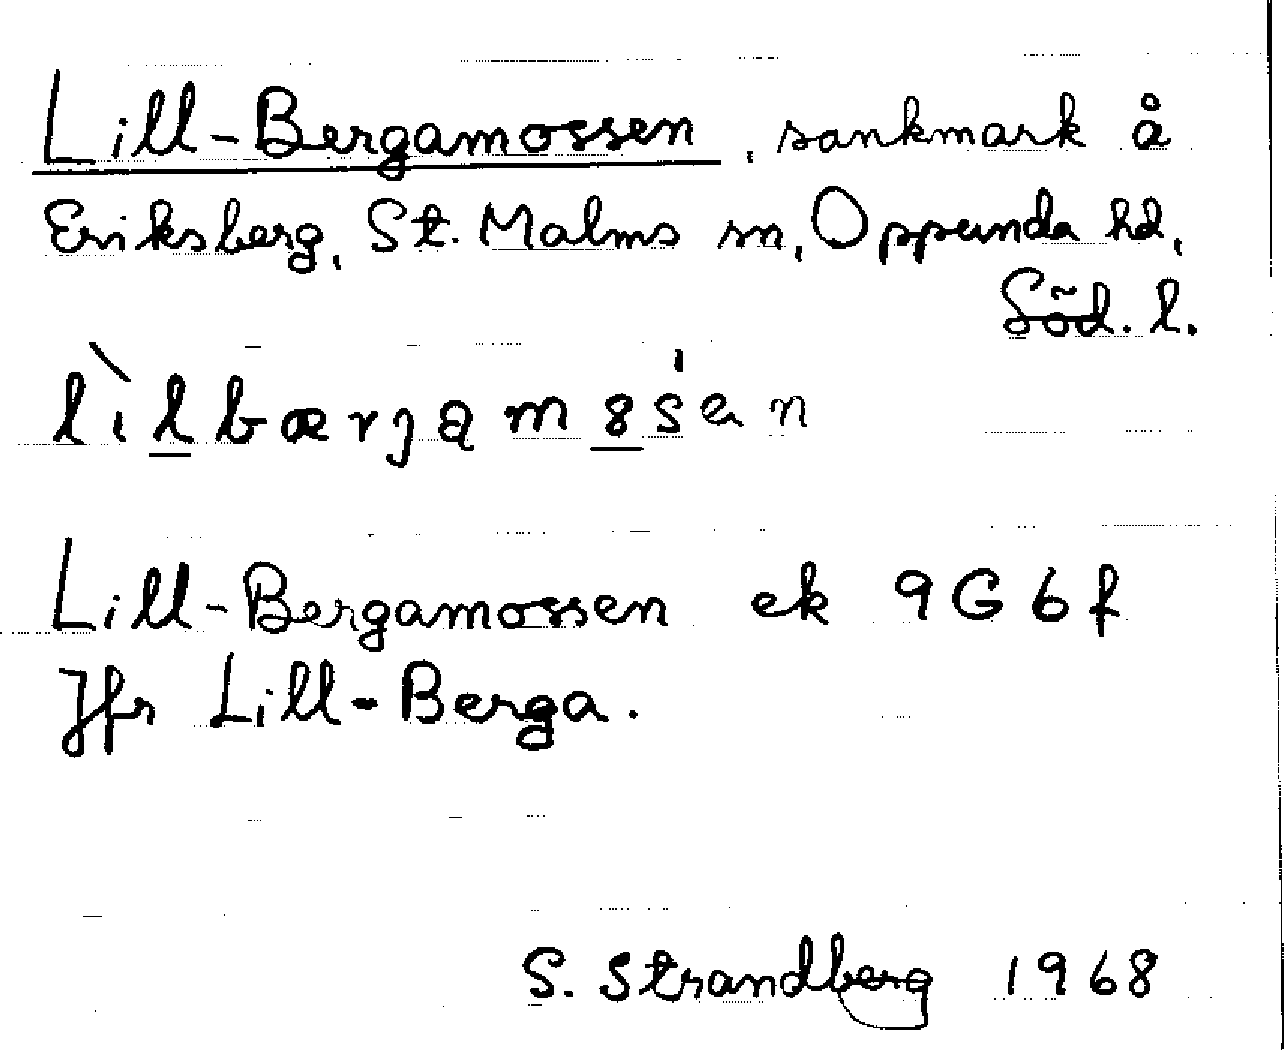 Lill-Bergamossen, sankmark å
Eriksberg, St. Malms sn, Oppunda hd,
Söd. l.
lìlbærjam8sen
Lill-Bergamossen ek 9G6f
Jfr Lill-Berga.
S. Strandberg 1968